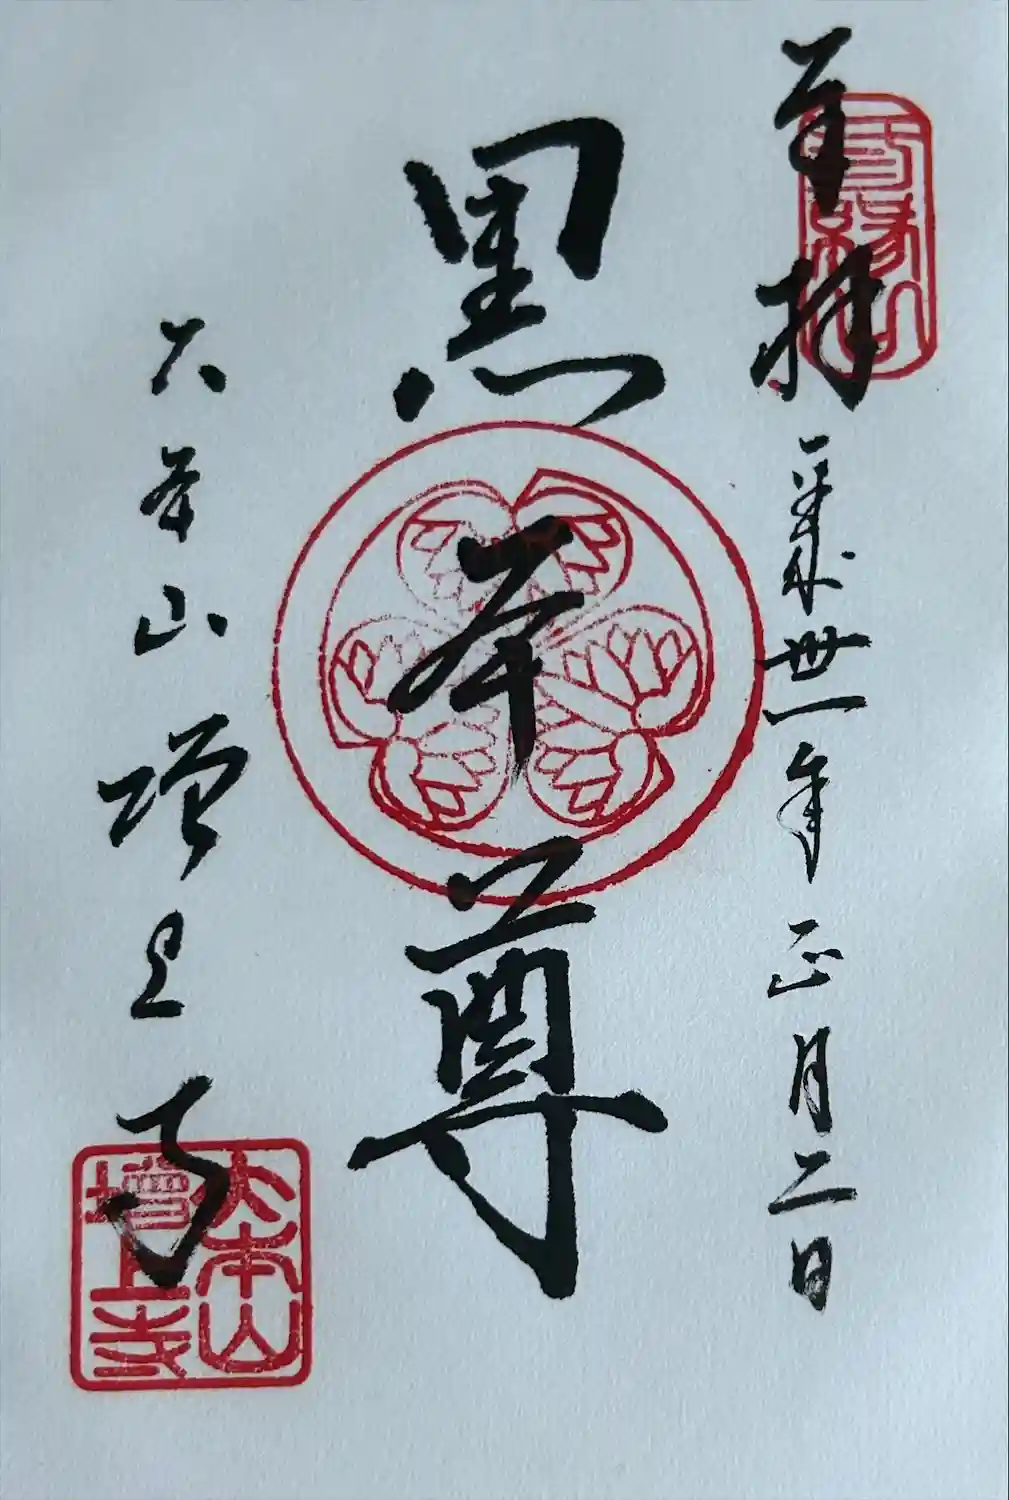 奉拝
平成卅一年正月二日
黒本尊
大本山増上寺
大本山
増上寺